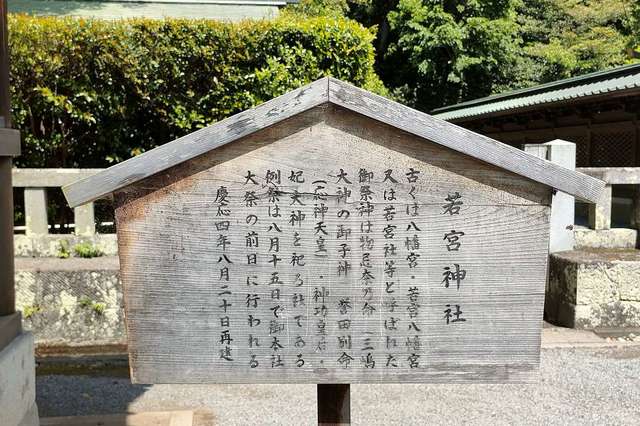 若宮神社
古くは八幡宮・若宮八幡宮
又は若宮社等と呼ばれた
御祭神は物忌奈乃命（三嶋
大神の御子神　誉田別命
（応神天皇）・神功皇后・
妃大神を祀る社である
例祭は八月十五日で御本社
大祭の前日に行われる
慶応四年八月二十日再建